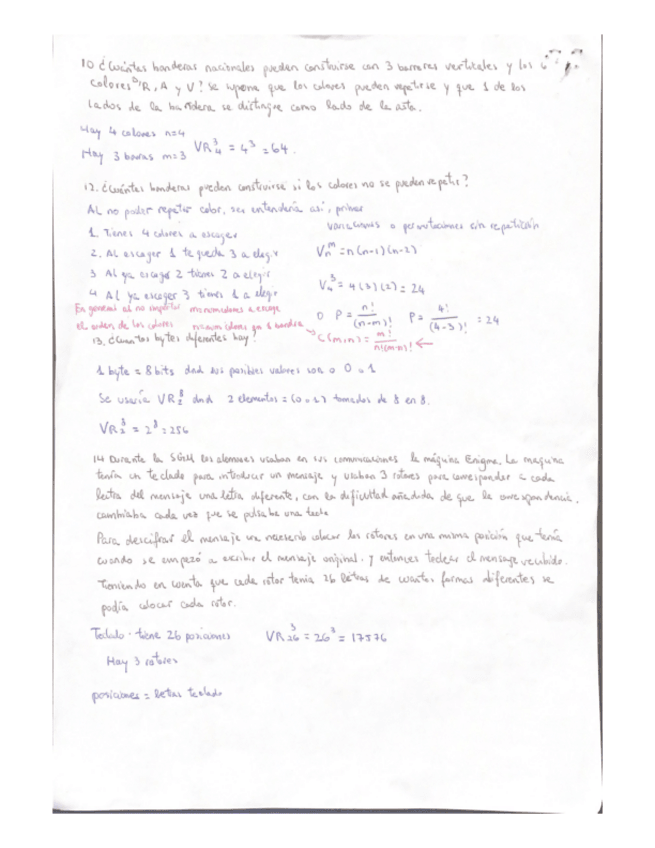 10 ¿Cuántas banderas nacionales pueden construirse con 3 barreras verticales y los 4
colores R, A y V? Se supone que los colores pueden repetirse y que 1 de los
lados de la bandera se distingue como lado de la asta.
Hay 4 colores n=4
Hay 3 barras m=3 VR₄³ = 4³ = 64.
12. ¿Cuántas banderas pueden construirse si los colores no se pueden repetir?
Al no poder repetir color, se entendería así, primero
variaciones o permutaciones sin repetición
1. Tienes 4 colores a escoger
2. Al escoger 1 te queda 3 a elegir
Vₙᵐ = n(n-1)(n-2)
3 Al ya escoger 2 tienes 2 a elegir
V₄³ = 4(3)(2) = 24
4 Al ya escoger 3 tienes 1 a elegir
En general al no importar m=numcolores a escoge
el orden de los colores n=num colores ya 1 bandera
O P = n!/(n-m)! P = 4!/(4-3)! = 24
C(m,n) = m!/n!(m-n)! ←
13. ¿Cuántos bytes diferentes hay?
1 byte = 8 bits dnd sus posibles valores son o 0 o 1
Se usaría VR₂⁸ dnd 2 elementos = (0 o 1) tomados de 8 en 8.
VR₂⁸ = 2⁸ = 256
14 Durante la SGM los alemanes usaban en sus comunicaciones la máquina Enigma. La maquina
tenía un teclado para introducir un mensaje y usaban 3 rotores para corresponder a cada
letra del mensaje una letra diferente, con la dificultad añadida de que la correspondencia
cambiaba cada vez que se pulsaba una tecla
Para descifrar el mensaje era necesario colocar los rotores en una misma posición que tenía
cuando se empezó a escribir el mensaje original. y entonces teclear el mensaje recibido.
Teniendo en cuenta que cada rotor tenia 26 letras de cuantas formas diferentes se
podía colocar cada rotor.
Teclado · tiene 26 posiciones VR₂₆³ = 26³ = 17576
Hay 3 rotores
posiciones = letras teclado